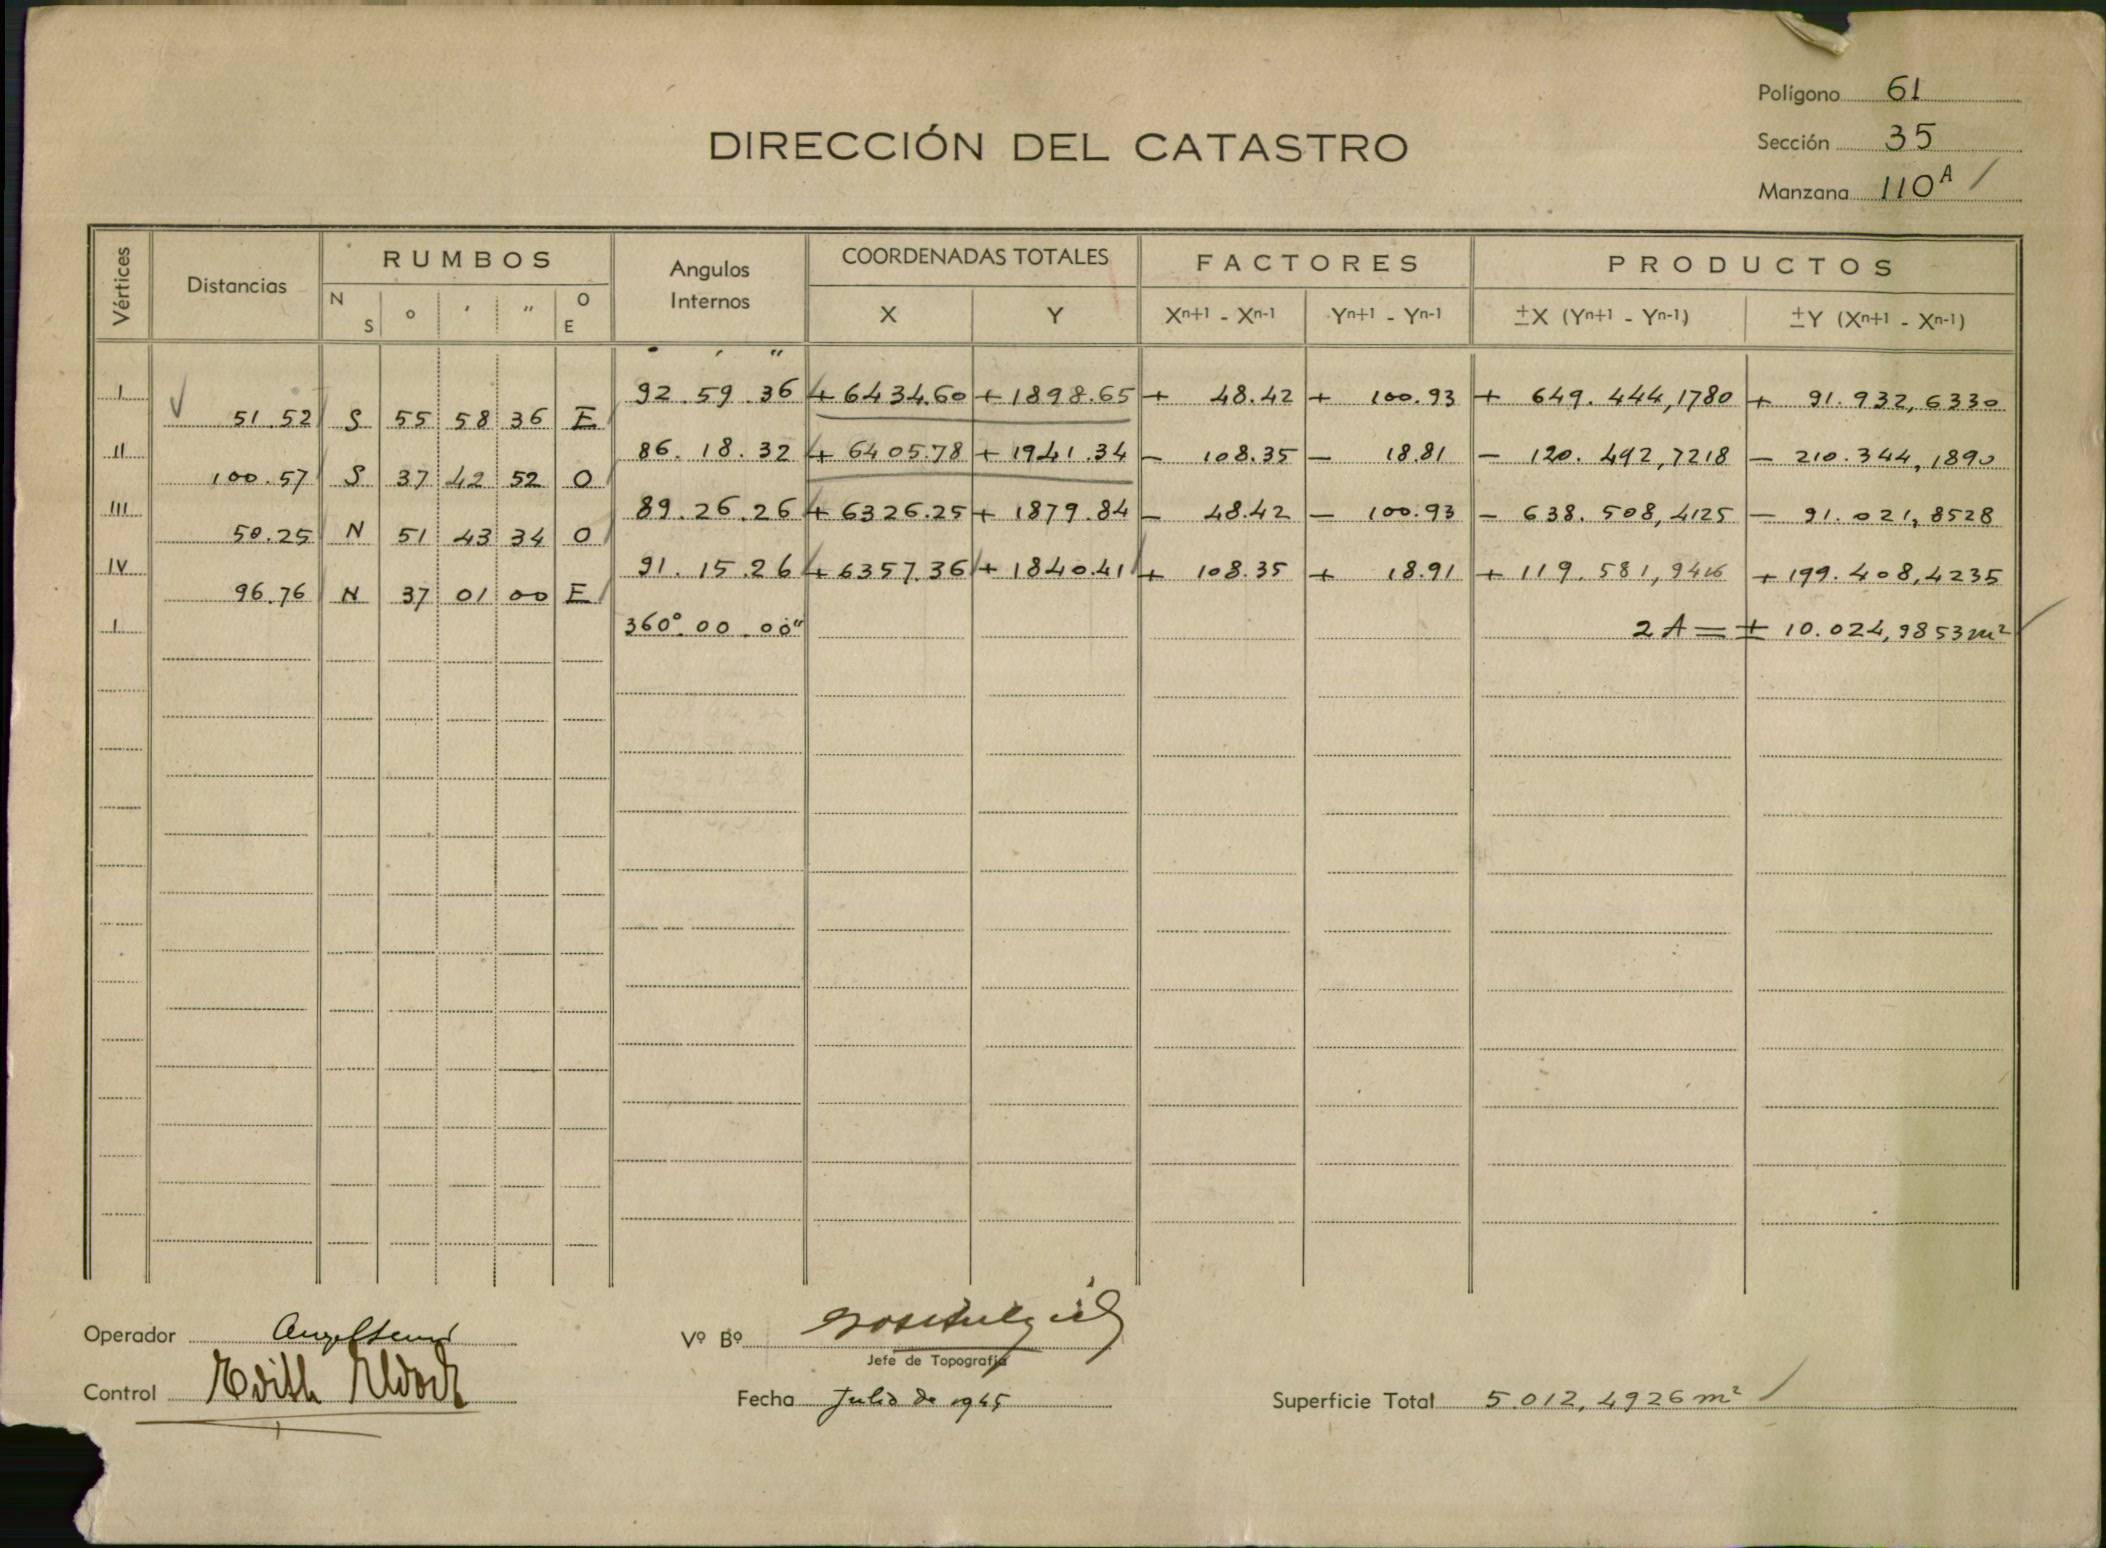 Polígono 61
DIRECCIÓN DEL CATASTRO
Sección 35
Manzana 110A
Vértices Distancias RUMBOS Angulos Internos COORDENADAS TOTALES FACTORES PRODUCTOS
N S ° ′ ″ O E X Y Xn+1 - Xn-1 Yn+1 - Yn-1 ±X (Yn+1 - Yn-1) ±Y (Xn+1 - Xn-1)
° ′ ″
I 92.59.36 +6434.60 +1898.65 + 48.42 + 100.93 + 649.444,1780 + 91.932,6330
51.52 S 55 58 36 E
II 86.18.32 + 6405.78 + 1941.34 - 108.35 - 18.81 - 120.492,7218 - 210.344,1890
100.57 S 37 42 52 O
III 89.26.26 + 6326.25 + 1879.84 - 48.42 - 100.93 - 638.508,4125 - 91.021,8528
50.25 N 51 43 34 O
IV 91.15.26 + 6357.36 + 1840.41 + 108.35 + 18.91 + 119.581,9416 + 199.408,4235
96.76 N 37 01 00 E
I 360°.00.00" 2A = + 10.024,9853 m²
Operador
Vº Bº
Jefe de Topografía
Control Edith
Fecha Julio de 1945
Superficie Total 5.012,4926 m²